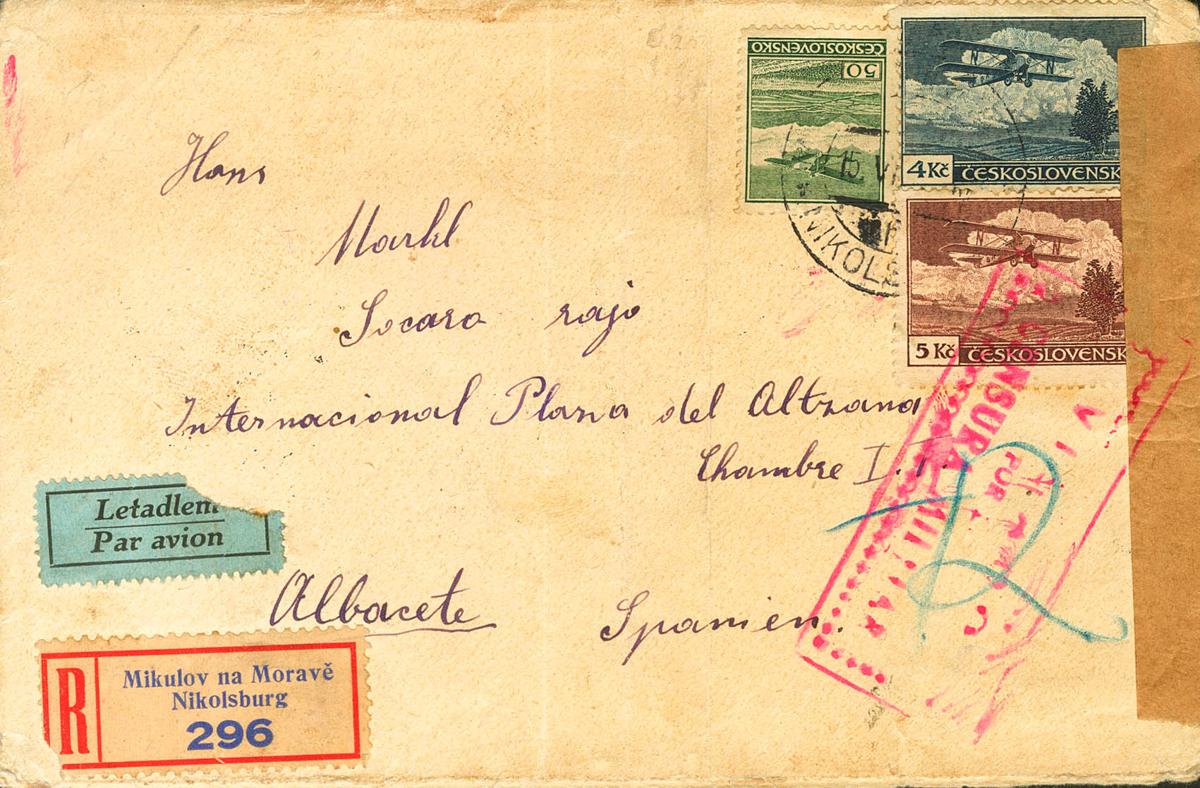 ČESKOSLOVENSKO
50
4 Kč ČESKOSLOVENSK
5 Kč ČESKOSLOVENSK
15 VI
MIKOLS
Hans
Markl
Socaro rajo
Internacional Plana del Altzana
Chambre I. I.
Albacete Spanien.
Letadlem
Par avion
R
Mikulov na Moravě
Nikolsburg
296
CENSURA MILITAR
POR